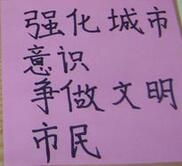 强化城市
意识
争做文明
市民